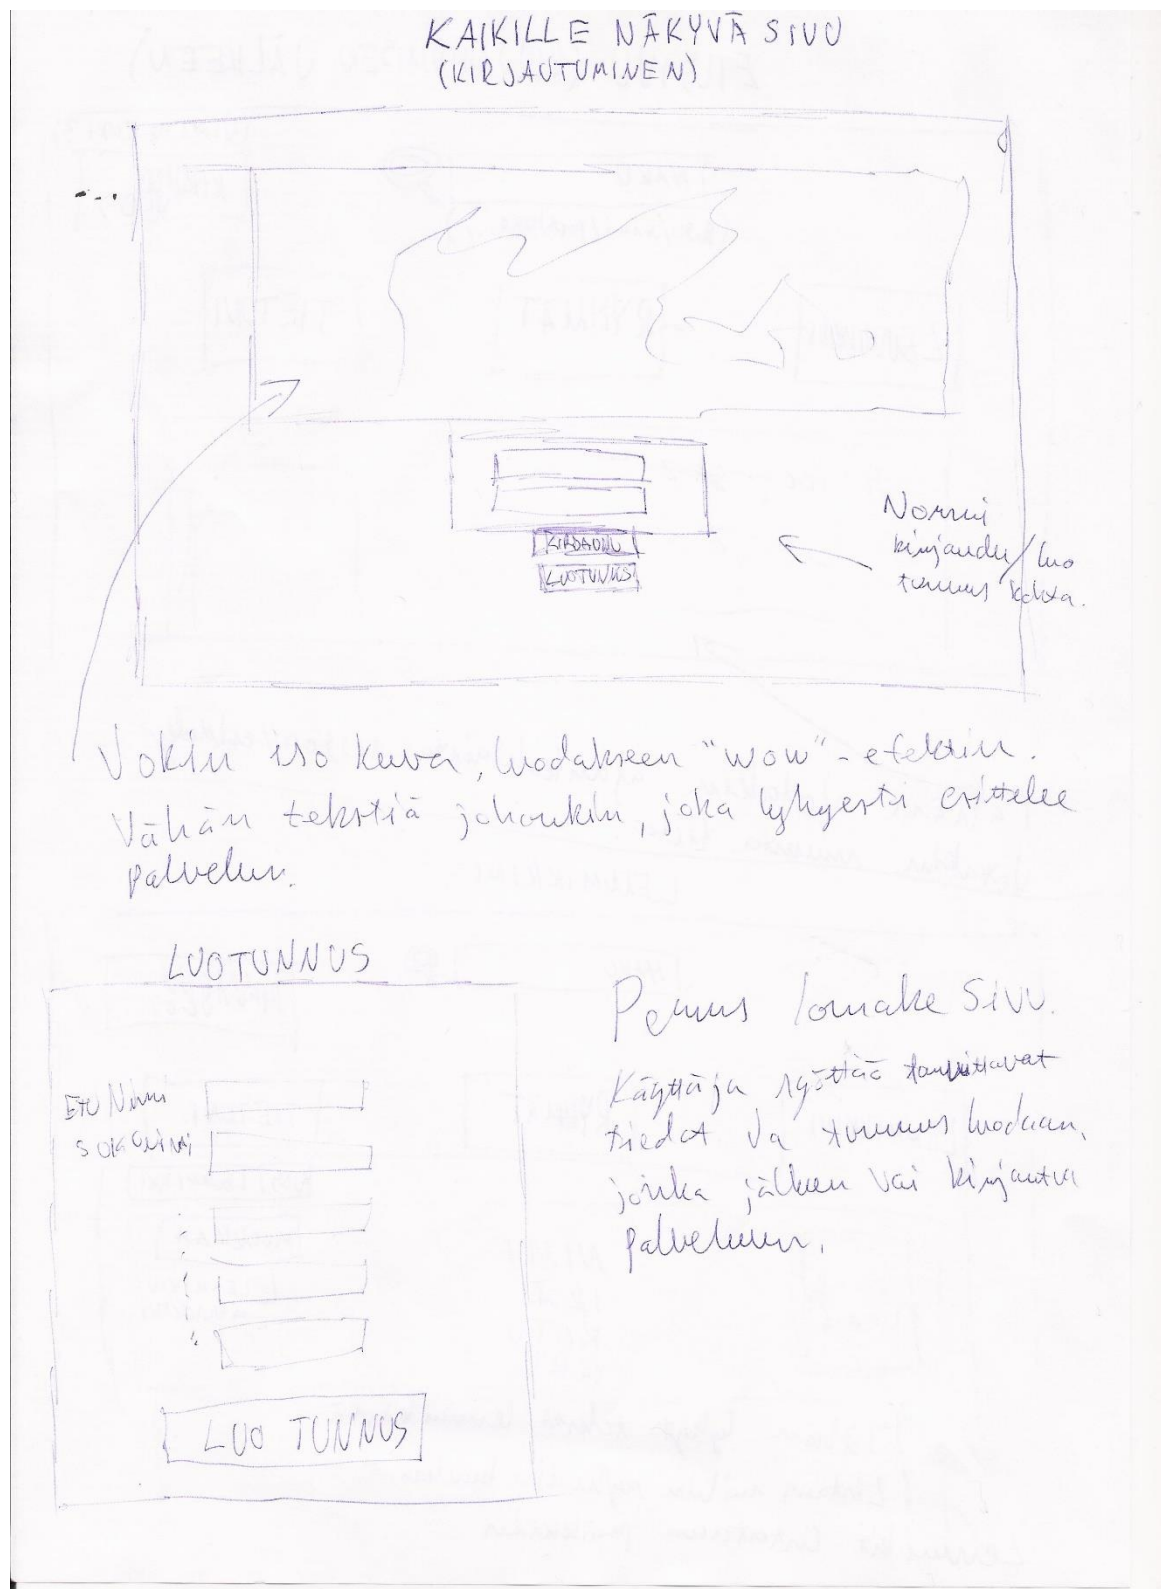 KAIKILLE NÄKYVÄ SIVU
(KIRJAUTUMINEN)
KIRJAUDU
LUOTUNKS
Normi
kirjaudu/luo
tunnus kohta.
Jokin iso kuva, luodakseen "wow"-efektin.
Vähän tekstiä johonkin, joka lyhyesti esittelee
palvelun.
LUOTUNNUS
Perus lomake sivu.
Etu Nimi
SUKUNIMI
Käyttäjä syöttää tarvittavat
tiedot ja tunnus luodaan,
jonka jälkeen voi kirjautua
palveluun.
LUO TUNNUS